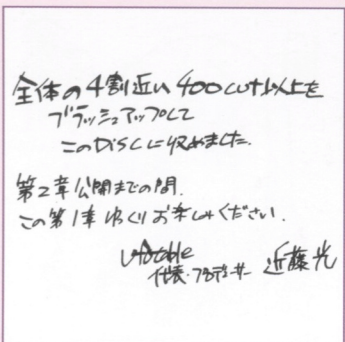 全体の4割近い400cut以上を
ブラッシュアップして
このDiscに収めました.
第2章公開までの間.
この第1章ゆっくりお楽しみください.
ufotable
代表・プロデューサー 近藤光